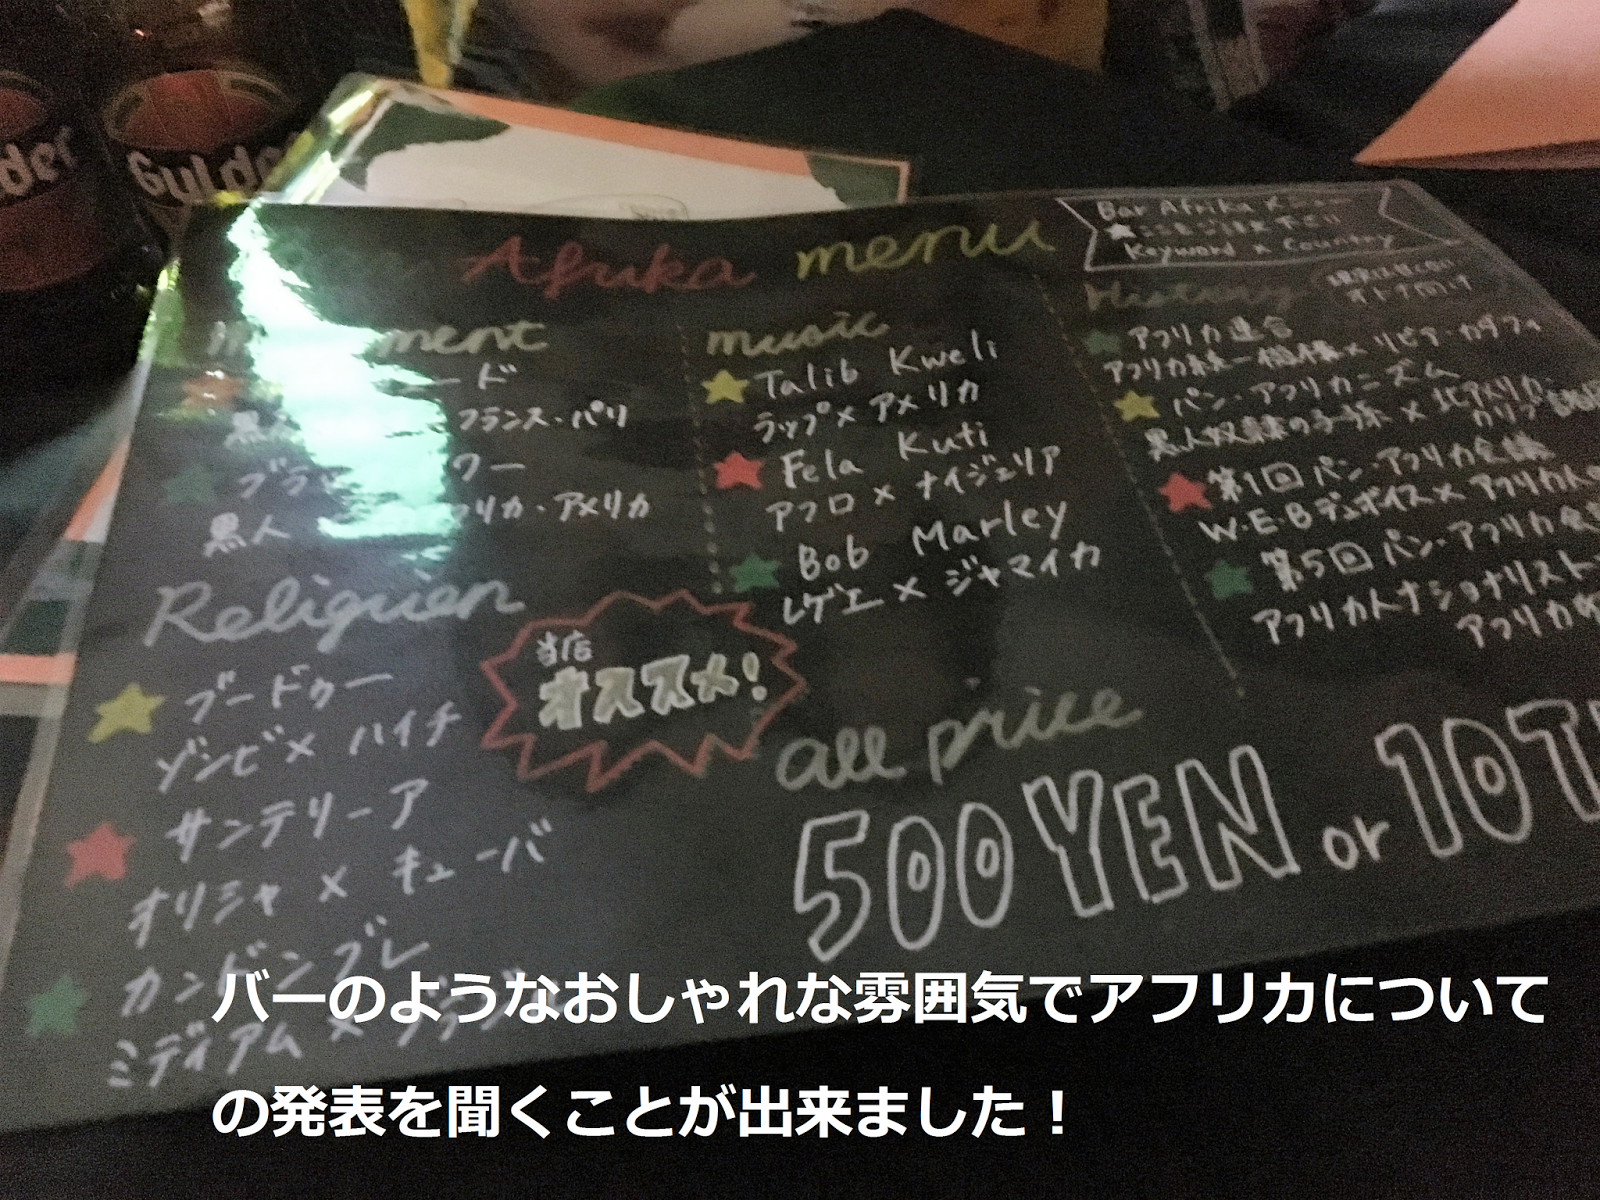 Gulder
Afrika menu
Bar Afrika メニュー
Keyword × Country
ment
ード
フランス・パリ
ワー
黒人
リカ・アメリカ
Religuien
ブードゥー
ゾンビ × ハイチ
サンテリーア
オリシャ × キューバ
カンドンブレ
ミディアム × ブラジル
当店
オススメ!
music
Talib Kweli
ラップ × アメリカ
Fela Kuti
アフロ × ナイジェリア
Bob Marley
レゲエ × ジャマイカ
History
アフリカ連合
アフリカ統一機構 × リビア・カダフィ
パン・アフリカニズム
黒人奴隷の子孫 × 北アメリカ・
カリブ
第1回 パン・アフリカ会議
W・E・Bデュボイス × アフリカ人
第5回 パン・アフリカ会
アフリカ人ナショナリスト
アフリカ
all price
500YEN or 10T
バーのようなおしゃれな雰囲気でアフリカについて
の発表を聞くことが出来ました！